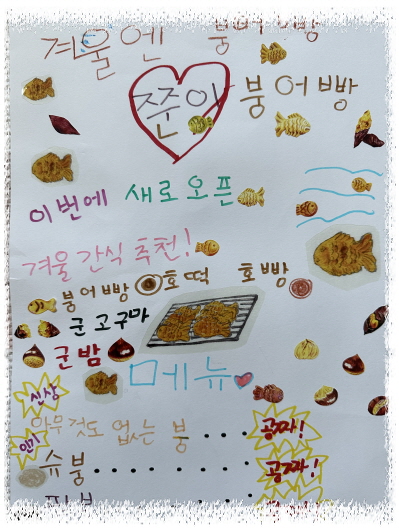 겨울엔
쭌아 붕어빵
이번에 새로 오픈
겨울 간식 추천!
붕어빵 호떡 호빵
군고구마
군밤
메뉴
신상
아무것도 없는 붕 ... 공짜!
인기
슈붕 ........ 공짜!